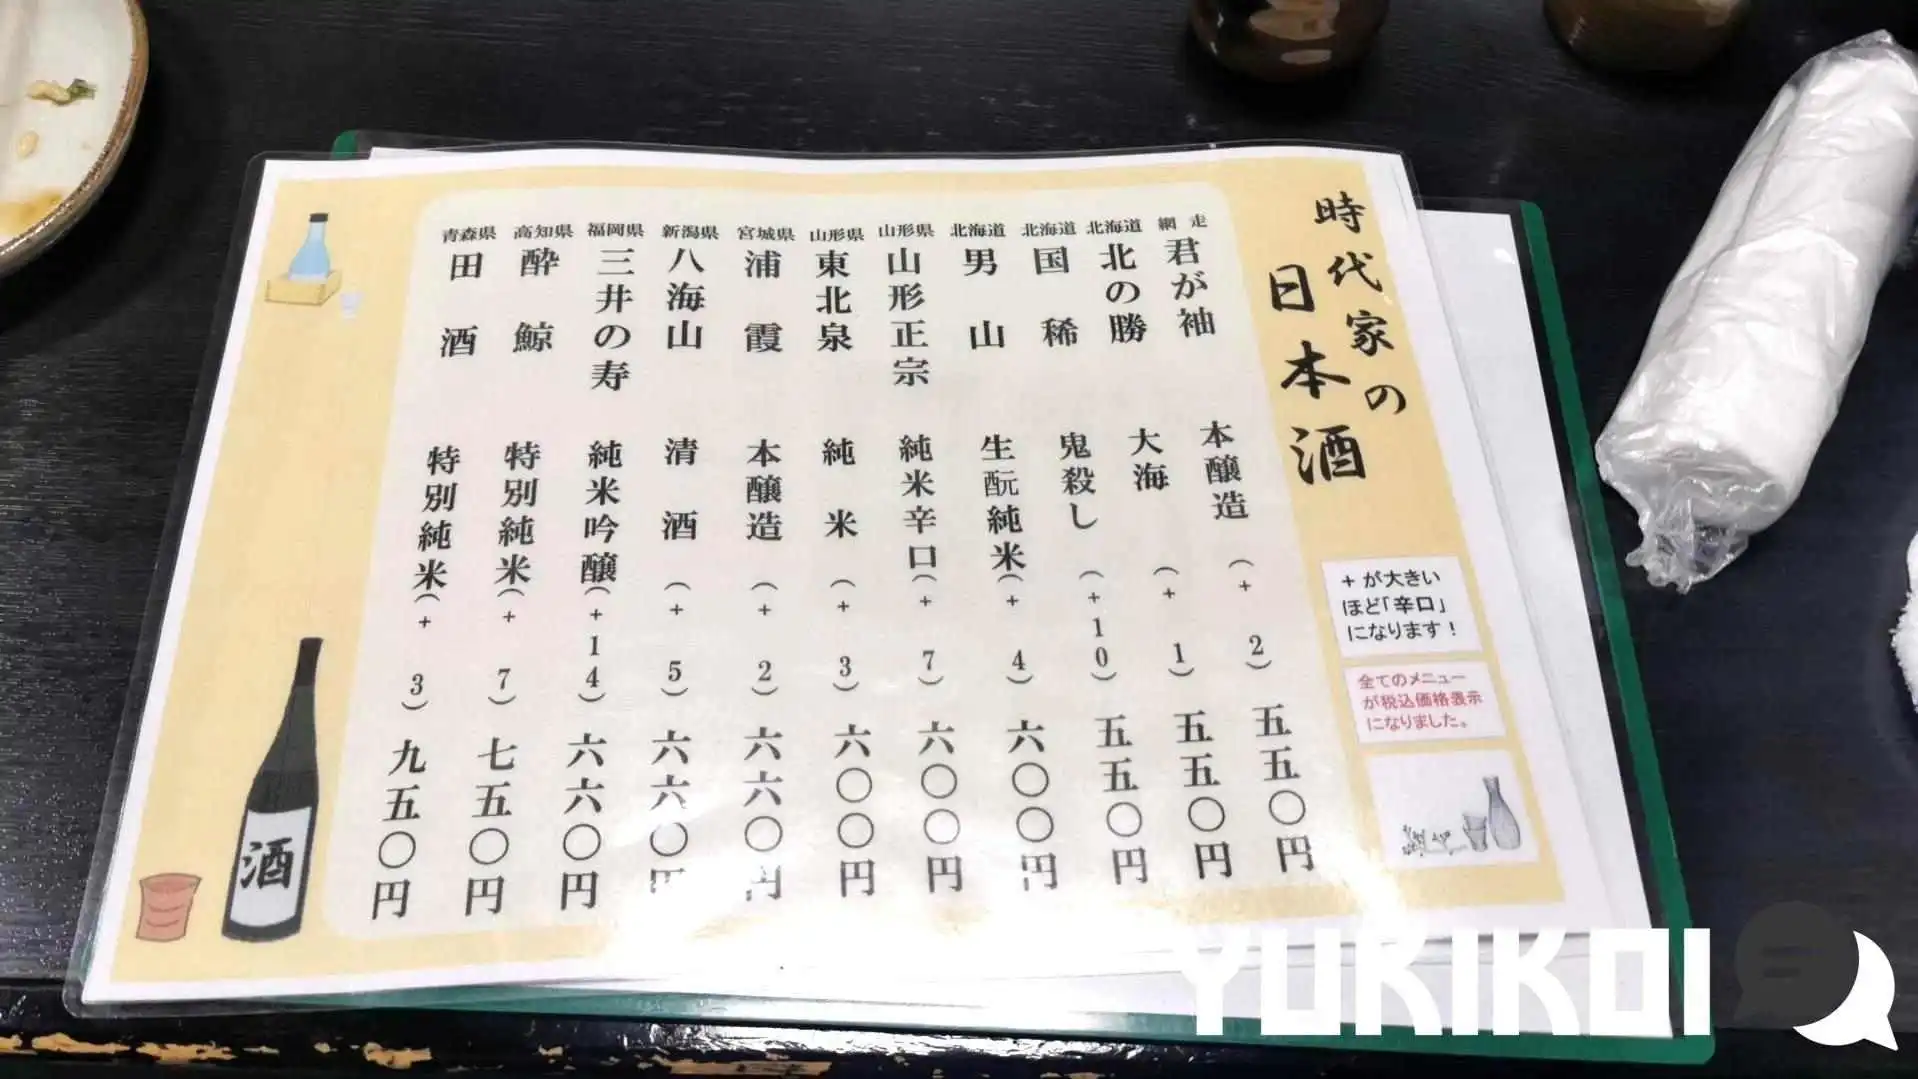 時代家の
日本酒
網走 君が袖 本醸造 (+2) 五五〇円
北海道 北の勝 大海 (+1) 五五〇円
北海道 国稀 鬼殺し (+10) 五五〇円
北海道 男山 生酛純米 (+4) 六〇〇円
山形県 山形正宗 純米辛口 (+7) 六〇〇円
山形県 東北泉 純米 (+3) 六〇〇円
宮城県 浦霞 本醸造 (+2) 六六〇円
新潟県 八海山 清酒 (+5) 六六〇円
福岡県 三井の寿 純米吟醸 (+14) 六六〇円
高知県 酔鯨 特別純米 (+7) 七五〇円
青森県 田酒 特別純米 (+3) 九五〇円
+が大きい
ほど「辛口」
になります!
全てのメニュー
が税込価格表示
になりました。
酒
YURIKOI